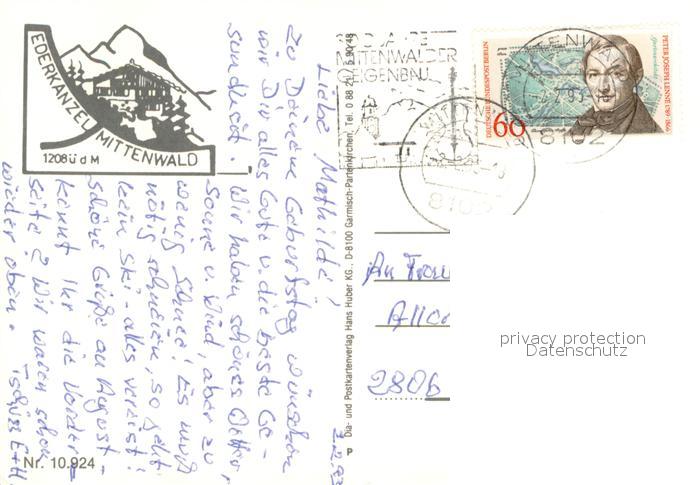 EDERKANZEL MITTENWALD
1208 ü d M
Liebe Mathilde!
Zu Deinem Geburtstag wünschen
wir Dir alles Gute u. die beste Ge-
sundheit. Wir haben schönes Wetter,
Sonne u. Wind, aber zu
wenig Schnee! Es muß
nötig schneien, so geht
kein Ski - alles vereist!
schöne Grüße an August -
kennt Ihr die Vorder-
seite? Wir waren schon
wieder oben.
Tschüss E+H.
Nr. 10.924
P Dia- und Postkartenverlag Hans Huber KG., D-8100 Garmisch-Partenkirchen, Tel. 0 88 21 / 5 90 48
MITTENWALDER
GEIGENBAU
8102
DEUTSCHE BUNDESPOST BERLIN
60
PETER JOSEPH LENNÉ 1789-1866
8102
An Frau
2806
privacy protection
Datenschutz